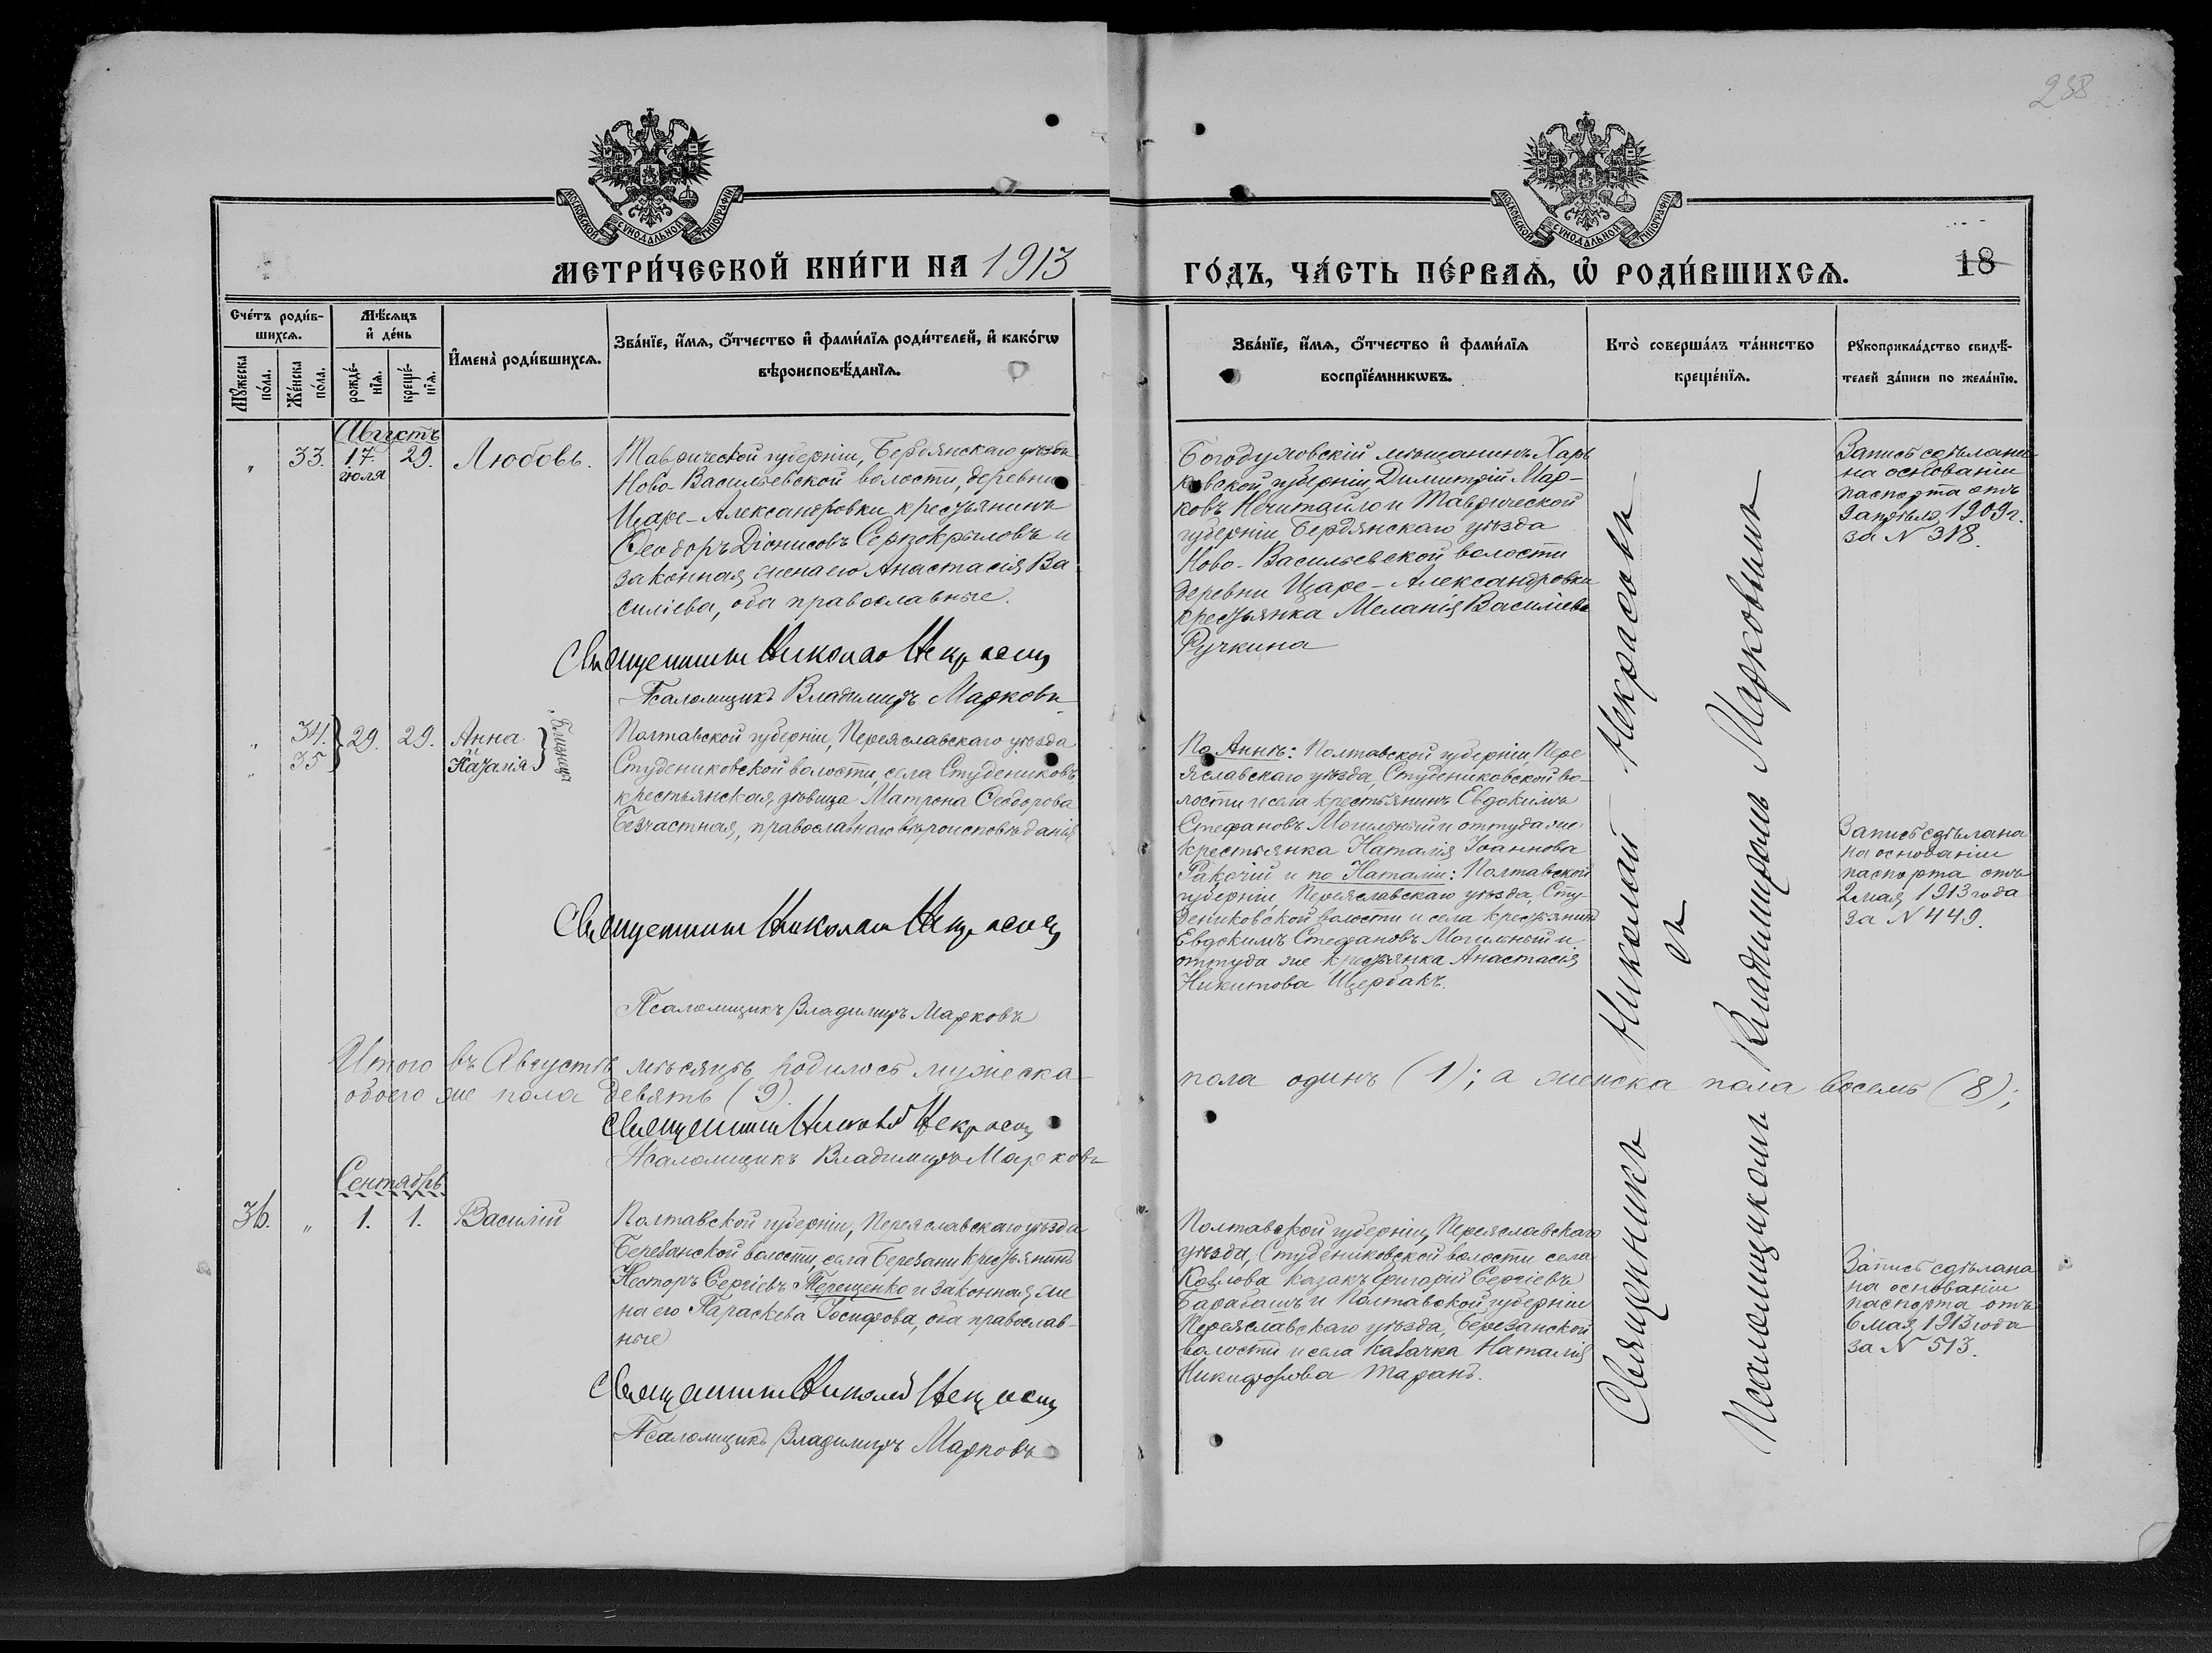 288
МОСКОВСКОЙ СѴНОДАЛЬНОЙ ТИПОГРАФІИ
МОСКОВСКОЙ СѴНОДАЛЬНОЙ ТИПОГРАФІИ
МЕТРИ́ЧЕСКОЙ КНИ́ГИ НА 1913
ГО́ДЪ, ЧА́СТЬ ПЕ́РВАѦ, Ѡ РОДИ́ВШИХСѦ.
18
Сче́тъ роди́в-
шихсѧ.
Мꙋ́жеска
по́ла.
Же́нска
по́ла.
Мѣ́сѧцъ
и҆ де́нь
рожде́-
нїѧ.
креще́-
нїѧ.
И҆мена̀ роди́вшихсѧ.
Зва́нїе, и҆́мѧ, ѻ҆́тчество и҆ фами́лїѧ роди́телей, и҆ како́гѡ
вѣроисповѣ́данїѧ.
Зва́нїе, и҆́мѧ, ѻ҆́тчество и҆ фами́лїѧ
воспрїе́мникѡвъ.
Кто̀ соверша́лъ та́инство
креще́нїѧ.
Рꙋкоприкла́дство свидѣ́-
телей за́писи по жела́нїю.
Августъ
" 33. 17. 29. Любовь.
іюля
Таврической губерніи, Бердянскаго уѣзда
Ново-Васильевской волости, деревни
Царе-Александровки крестьянинъ
Ѳеодоръ Діонисовъ Серпокрыловъ и
законная жена его Анастасія Ва
силіева, оба православные.
Священникъ Николай Некрасовъ
Псаломщикъ Владимиръ Марковъ
Богодуховскій мѣщанинъ Харь
ковской губерніи, Димитрій Мар-
ковъ Нечитайло и Таврической
губерніи Бердянскаго уѣзда
Ново-Васильевской волости
деревни Царе-Александровки
крестьянка Меланія Василіева
Ручкина
Запись сдѣлана
на основаніи
паспорта отъ
9 апрѣля 1909 г.
за N 318.
" 34. 29. 29. Анна
" 35 Наталія
близнец
Полтавской губерніи, Переяславскаго уѣзда
Студениковской волости, села Студениковъ
крестьянская дѣвица Матрона Ѳеодорова
Безчастная, православнаго вѣроисповѣданія
Священникъ Николай Некрасовъ
Псаломщикъ Владимиръ Марковъ
По Аннѣ: Полтавской губерніи, Пере
яславскаго уѣзда, Студениковской во-
лости и села крестьянинъ Евдокимъ
Стефановъ Могильный и оттуда же
крестьянка Наталія Іоаннова
Ракочій и по Наталіи: Полтавской
губерніи, Переяславскаго уѣзда, Сту-
дениковской волости и села крестьянинъ
Евдокимъ Стефановъ Могильный и
оттуда же крестьянка Анастасія
Никитова Щербакъ.
Запись сдѣлана
на основаніи
паспорта отъ
2 мая 1913 года
за N 449.
Итого въ Августѣ мѣсяцѣ родилось мужеска
пола одинъ (1); а женска пола восемь (8);
обоего же пола девять (9).
Священникъ Николай Некрасовъ
Псаломщикъ Владимиръ Марковъ
Сентябрь
36. " 1. 1. Василій
Полтавской губерніи, Переяславскаго уѣзда
Березанской волости, села Березани крестьянинъ
Несторъ Сергіевъ Терещенко и законная же
на его Параскева Іосифова, оба православ-
ные
Священникъ Николай Некрасовъ
Псаломщикъ Владимиръ Марковъ
Полтавской губерніи, Переяславскаго
уѣзда, Студениковской волости села
Козлова казакъ Григорій Сергіевъ
Барабашъ и Полтавской губерніи
Переяславскаго уѣзда, Березанской
волости и села казачка Наталія
Никифорова Таранъ.
Запись сдѣлана
на основаніи
паспорта отъ
6 мая 1913 года
за N 513.
Священникъ Николай Некрасовъ
съ
Псаломщикомъ Владимиромъ Марковымъ